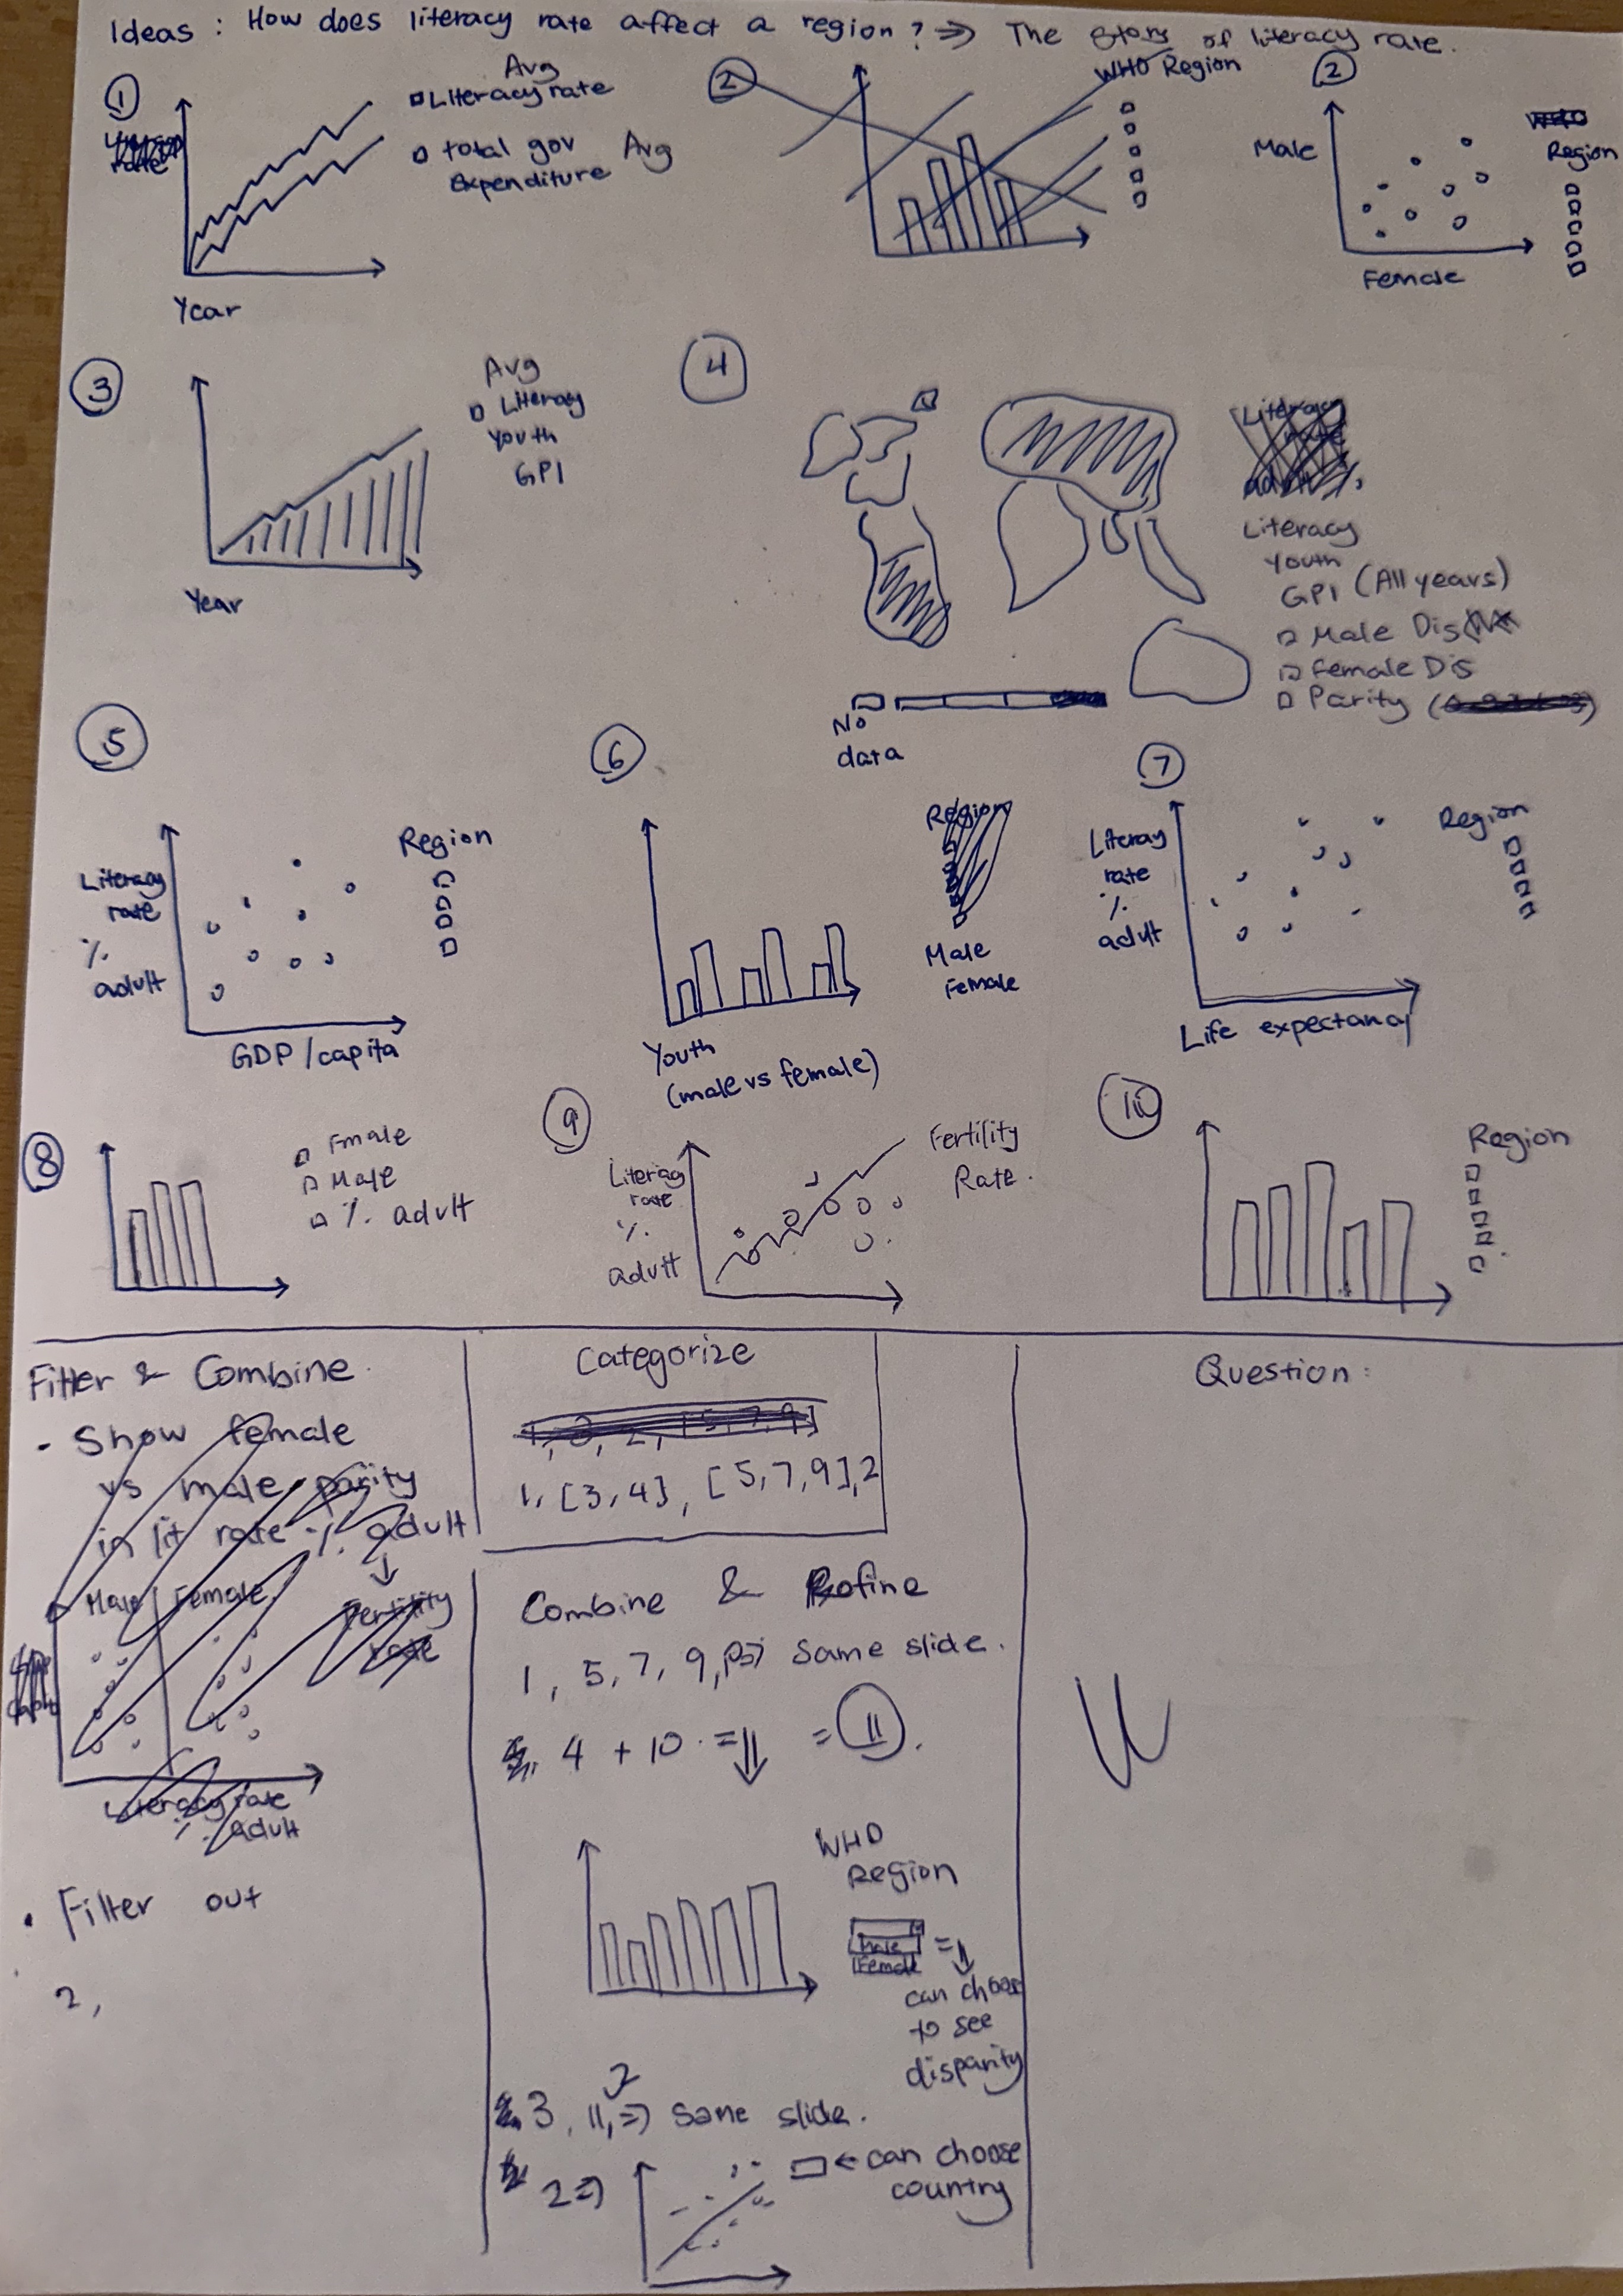 Ideas : How does literacy rate affect a region? => The Story of literacy rate.
①
Year
Avg
Literacy rate
total gov Avg
Expenditure
②
WHO Region
②
Male
Female
WHO
Region
③
Year
Avg
Literacy
Youth
GPI
④
No
data
Literacy
Youth
GPI (All years)
Male Dis
Female Dis
Parity
⑤
Literacy
rate
%
adult
GDP/capita
Region
⑥
Youth
(male vs female)
Region
Male
Female
⑦
Literay
rate
%
adult
Life expectancy
Region
⑧
Fmale
Male
% adult
⑨
Literacy
rate
%
adult
Fertility
Rate.
⑩
Region
Filter & Combine.
- Show female
vs male parity
in lit rate % adult
↓
Male Female
Fertility
rate
Literacy rate
% adult
• Filter out
2,
Categorize
1, 3, 2, [5, 7, 9]
1, [3, 4], [5, 7, 9], 2
Combine & Refine
1, 5, 7, 9, => Same slide.
4 + 10 = ↓ = ⑪.
WHO
Region
Male
Female
= ↓
can choose
to see
disparity
2
3, 11, => Same slide.
2 =>
← can choose
country
Question: